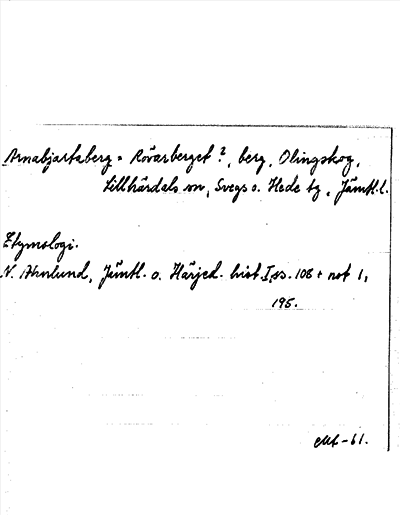 Arnabjartaberg = Rövarberget?, berg, Olingskog,
Lillhärdals sn, Svegs o. Hede tg, Jämtl. l.
Etymologi.
N. Ahnlund, Jämtl. o. Härjed. hist. I, ss. 108 + not 1,
195.
-61.